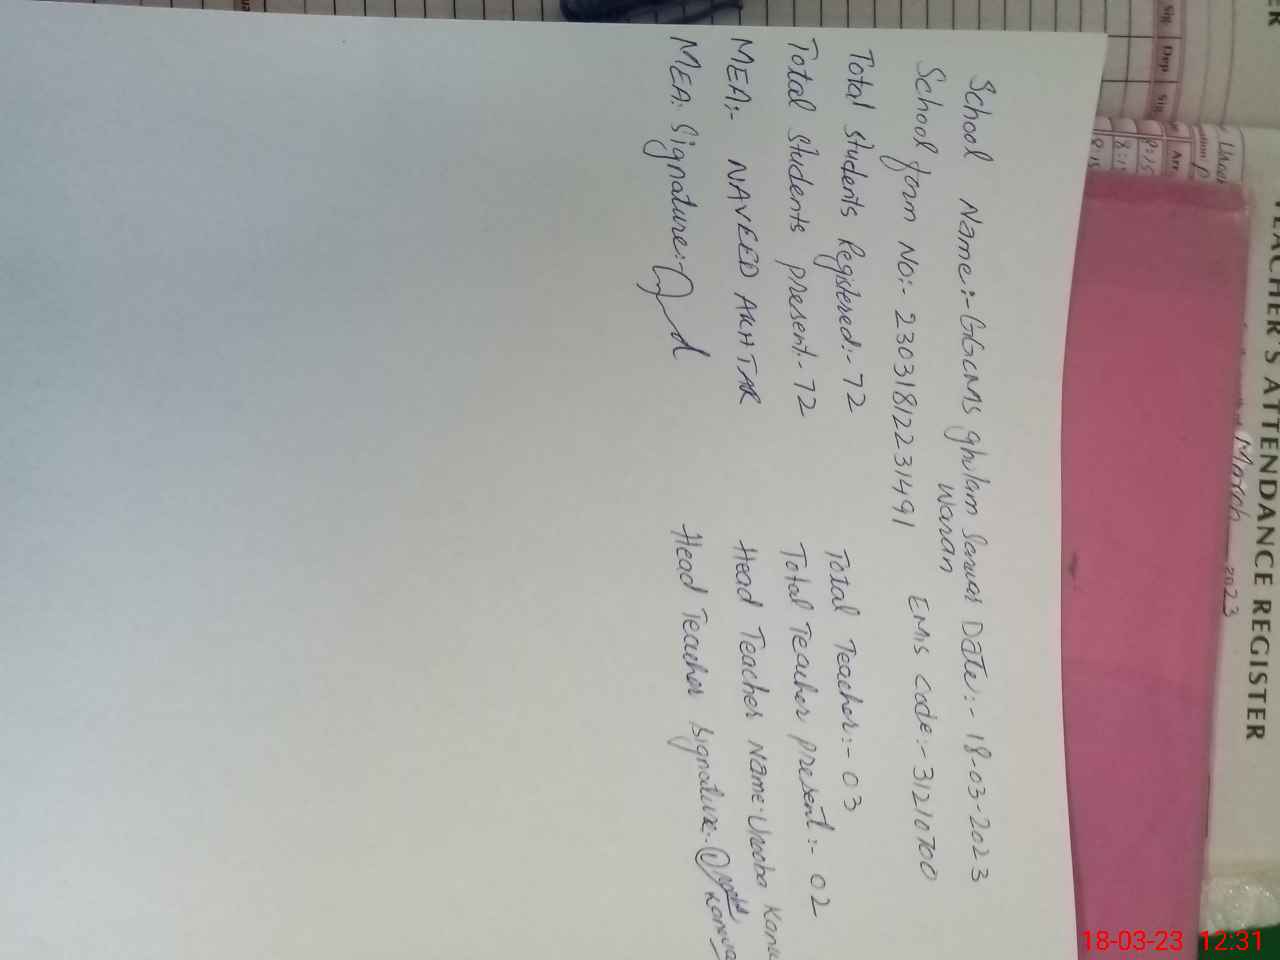 TEACHER'S ATTENDANCE REGISTER
March 2023
Sig Dep Sig
Arr.
8:15
School Name:- GGCMS ghulam Sarwar Date:- 18-03-2023
Waran
School form No:- 230318122231491 EMIS code:- 31210700
Total students Registered:- 72 Total Teacher:- 03
Total students present:- 72 Total Teacher present:- 02
MEA:- NAVEED AKHTAR Head Teacher Name:
MEA: Signature:- Head Teacher signature:-
18-03-23 12:31